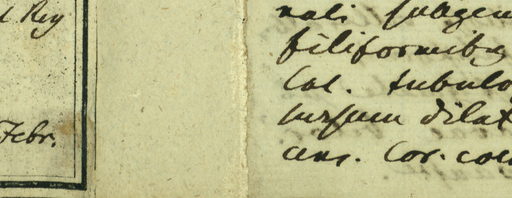 l Rey
Febr.
nali
filiformibq
Cal. tubulo
sursum dilat
ens. Cor. coe